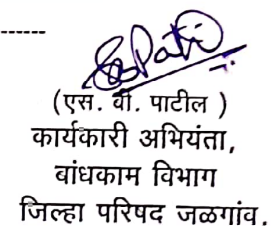 ------
(एस. वी. पाटील )
कार्यकारी अभियंता,
बांधकाम विभाग
जिल्हा परिषद जळगांव.